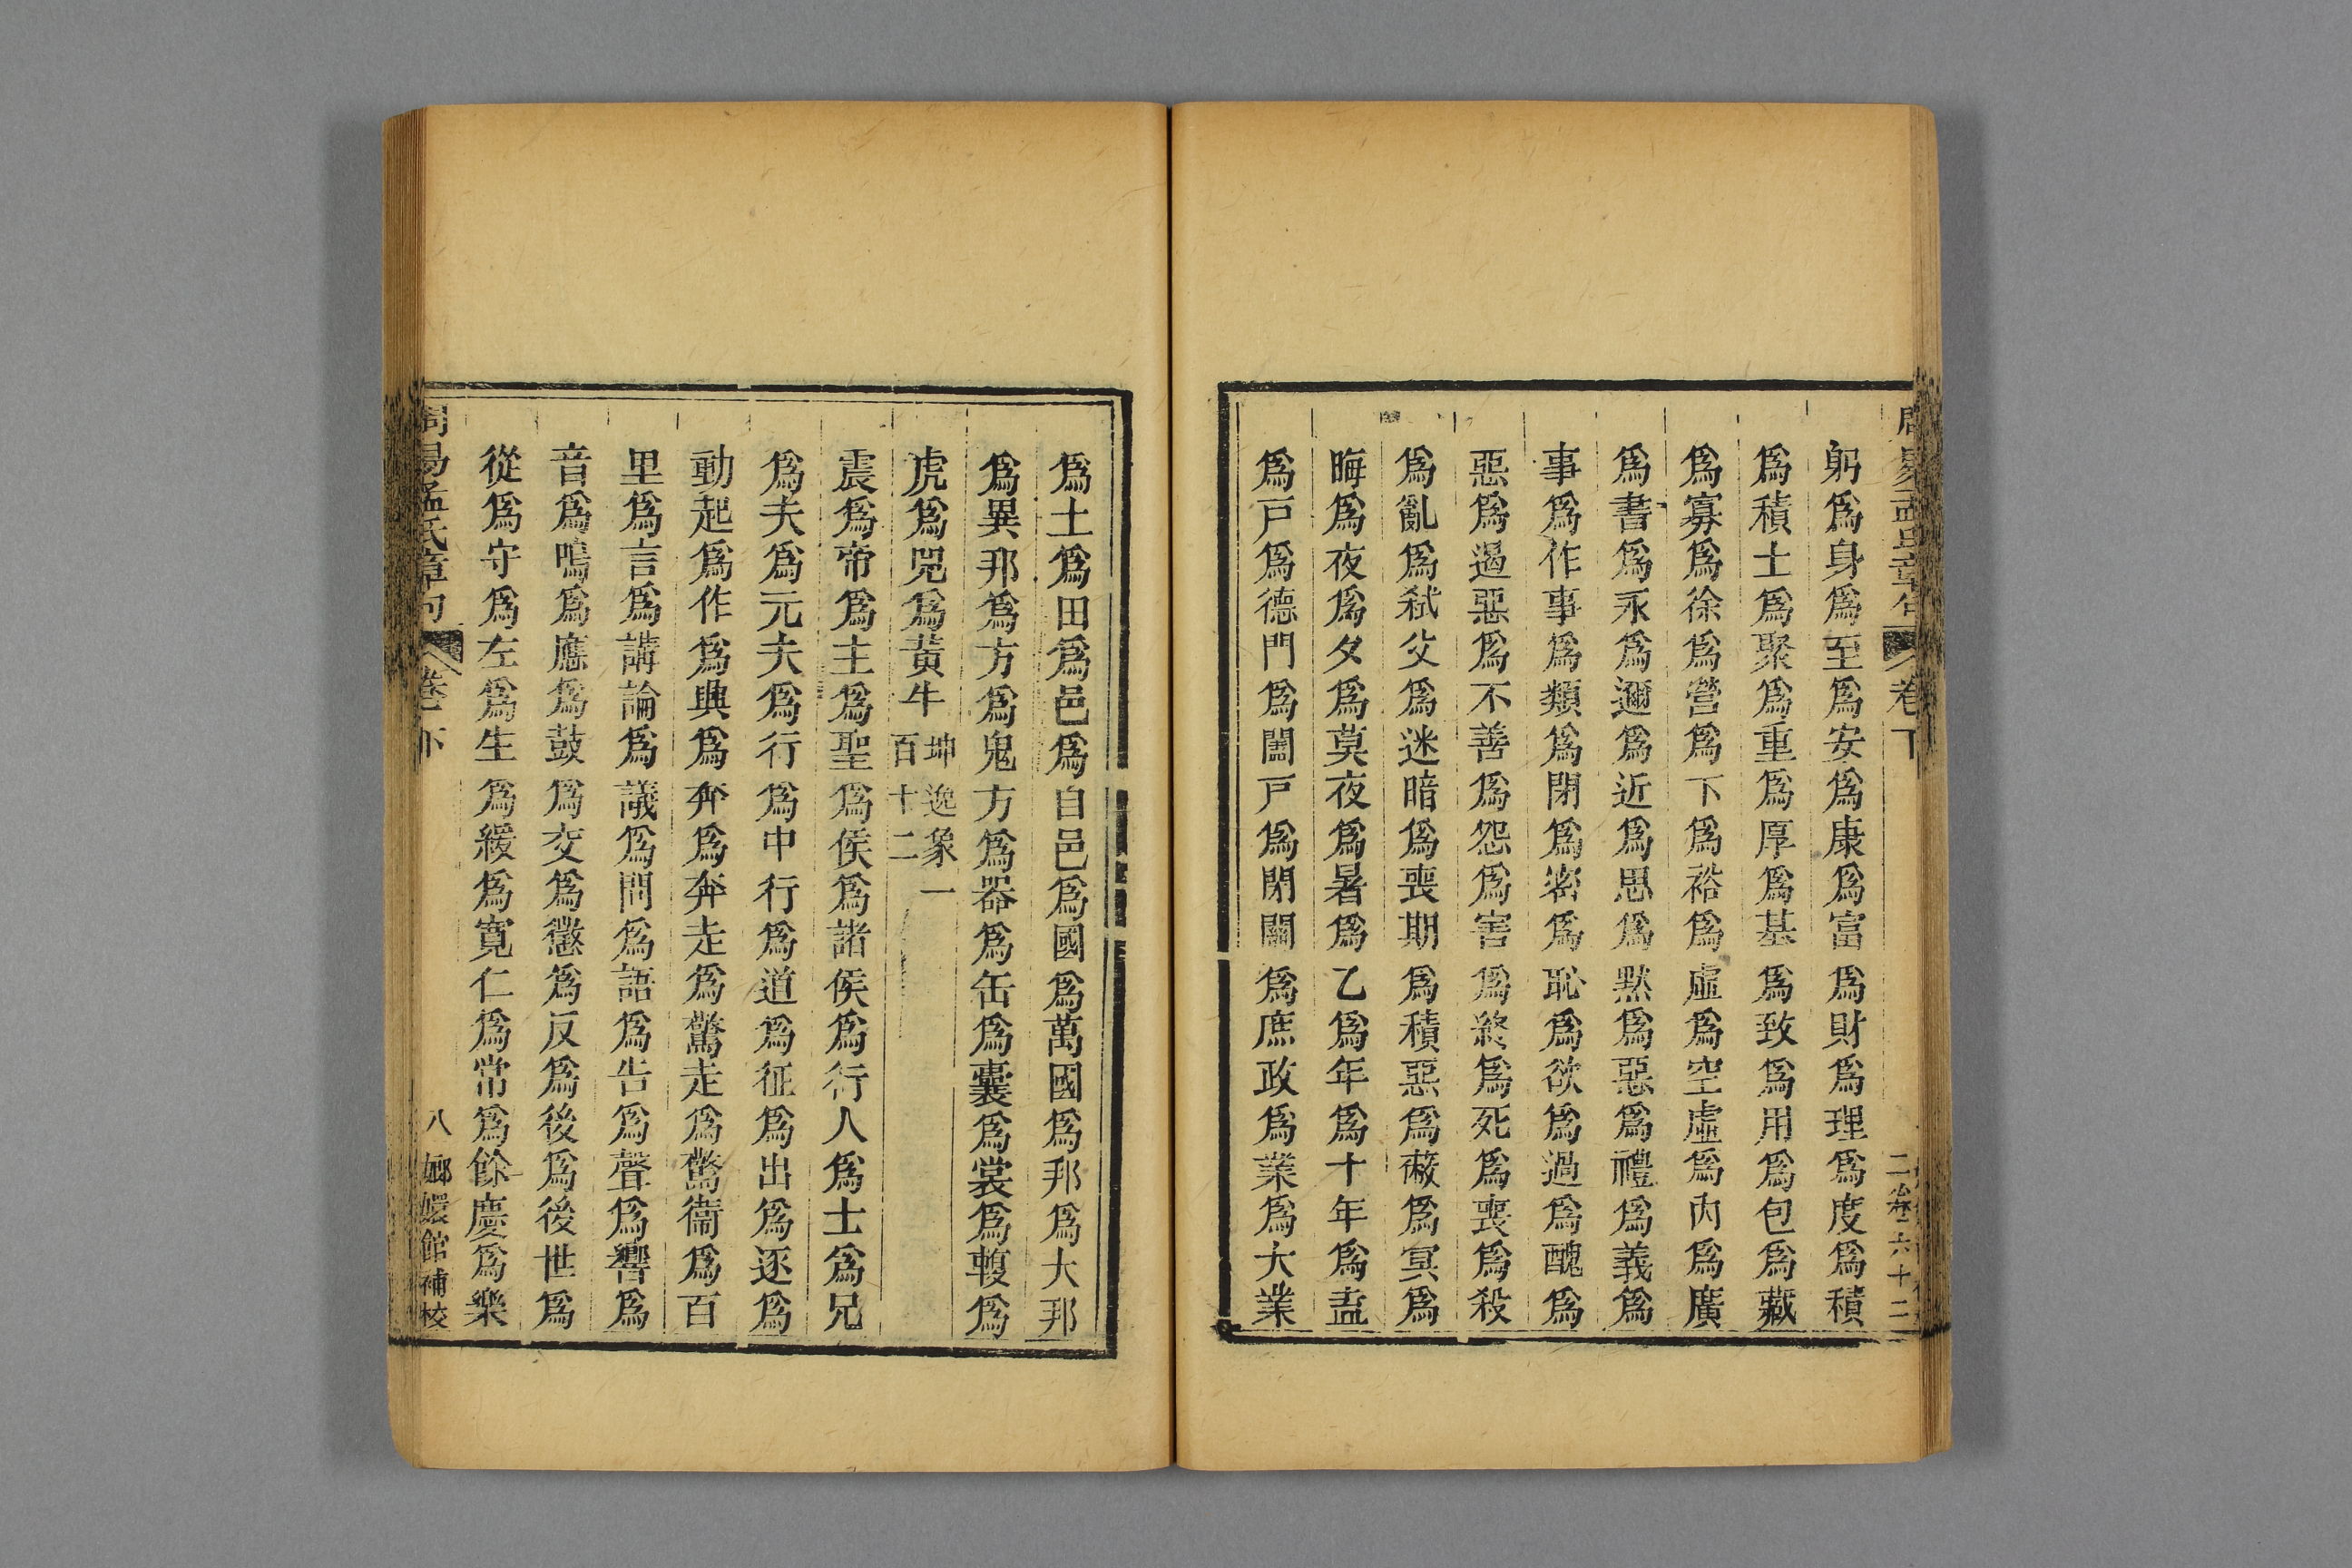 周易孟氏章句 卷下
二 卷六十二
躬爲身爲至爲安爲康爲富爲財爲理爲度爲積
爲積土爲聚爲重爲厚爲基爲致爲用爲包爲藏
爲寡爲徐爲營爲下爲裕爲虛爲空虛爲內爲廣
爲書爲永爲邇爲近爲思爲默爲惡爲禮爲義爲
事爲作事爲類爲閉爲密爲恥爲欲爲過爲醜爲
惡爲遏惡爲不善爲怨爲害爲終爲死爲喪爲殺
爲亂爲弒父爲迷暗爲喪期爲積惡爲蔽爲冥爲
晦爲夜爲夕爲莫夜爲暑爲乙爲年爲十年爲盍
爲戸爲德門爲闔戸爲閉關爲庶政爲業爲大業
爲土爲田爲邑爲自邑爲國爲萬國爲邦爲大邦
爲異邦爲方爲鬼方爲器爲缶爲囊爲裳爲輹爲
虎爲兕爲黃牛坤逸象一百十二
震爲帝爲主爲聖爲侯爲諸侯爲行人爲士爲兄
爲夫爲元夫爲行爲中行爲道爲征爲出爲逐爲
動起爲作爲興爲奔爲奔走爲驚走爲驚衞爲百
里爲言爲講論爲議爲問爲語爲告爲聲爲響爲
音爲鳴爲應爲鼓爲交爲懲爲反爲後爲後世爲
從爲守爲左爲生爲緩爲寬仁爲常爲餘慶爲樂
周易孟氏章句 卷下 八 嫏嬛館補校